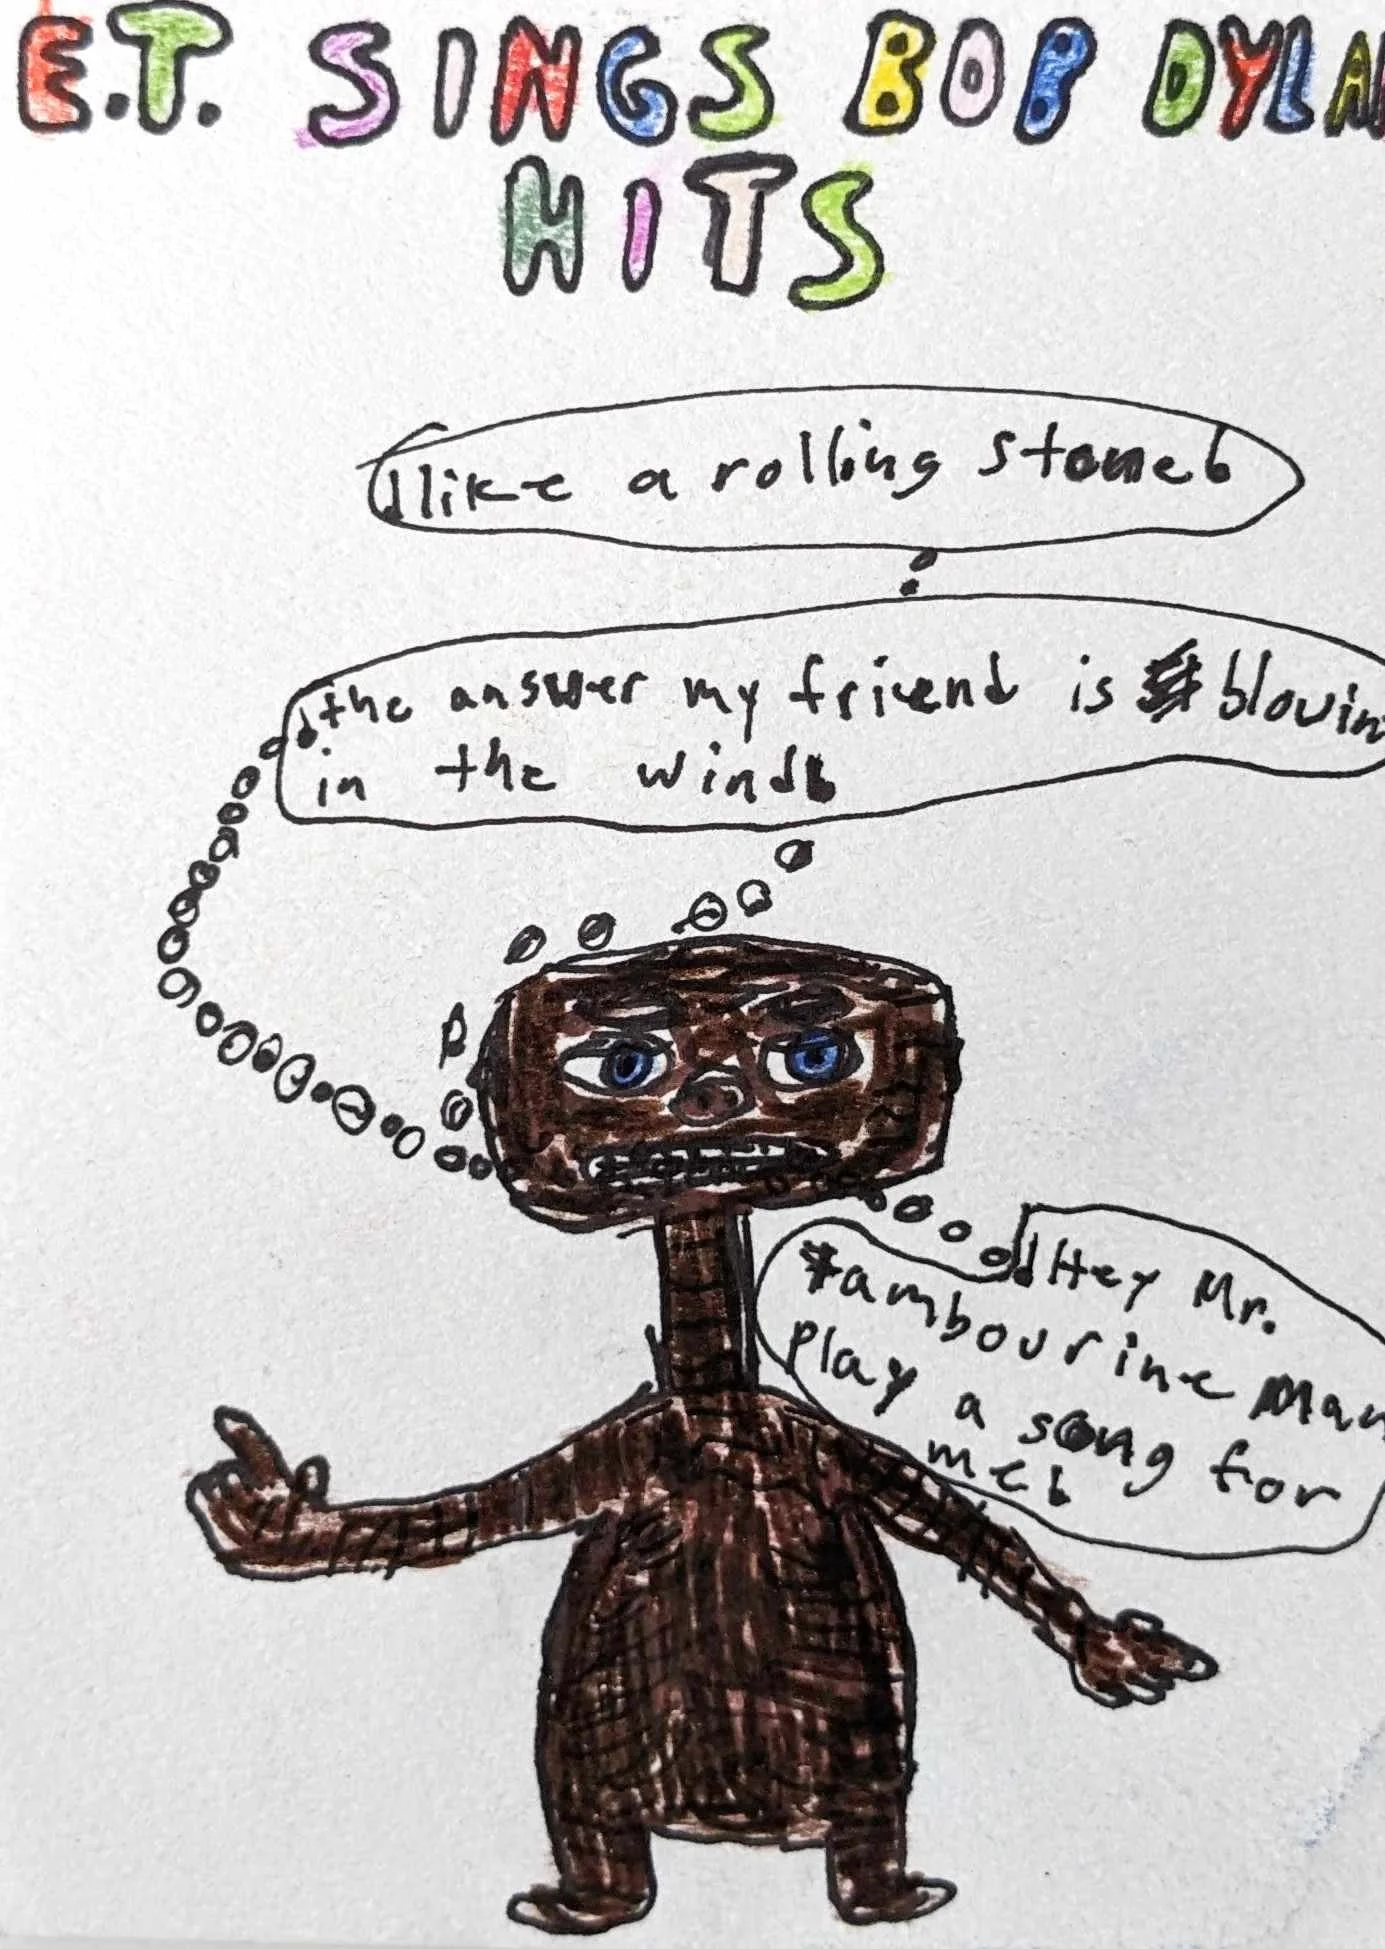 E.T. SINGS BOB DYLAN
HITS
♩like a rolling stone♭
♩the answer my friend is blowin
in the wind♭
♩Hey Mr.
tambourine Man
Play a song for
me♭